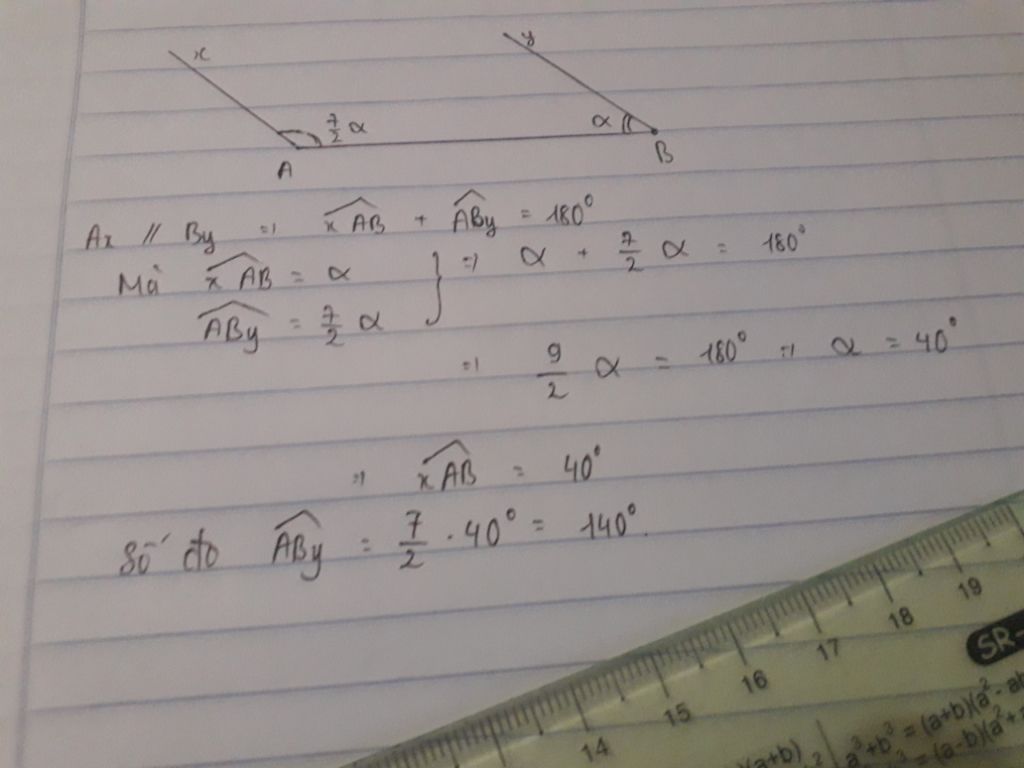 x y
7/2 α α
A B
Ax // By ⇒ xAB + ABy = 180°
Mà xAB = α } ⇒ α + 7/2 α = 180°
ABy = 7/2 α
⇒ 9/2 α = 180° ⇒ α = 40°
⇒ xAB = 40°
Số đo ABy = 7/2 . 40° = 140°.
14 15 16 17 18 19
SR-
(a+b)
a³+b³ = (a+b)(a²-ab
= (a-b)(a²+